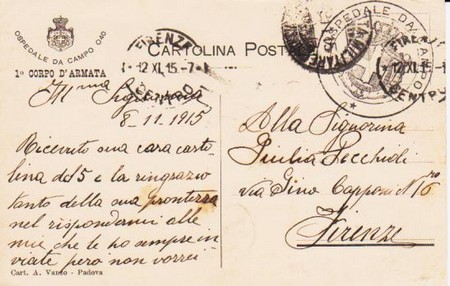 OSPEDALE DA CAMPO 040
1º CORPO D'ARMATA
CARTOLINA POSTALE
FIRENZE
12 XI. 15 - 7
CENTRO
OSPEDALE DA CAMPO
FIRENZE
12 XI. 15
CENTRO
Ill.ma Signorina
8-11-1915
Ricevuto sua cara carto-
lina del 5 e la ringrazio
tanto della sua prontezza
nel rispondermi alle
mie che le ho sempre in
viate però non vorrei
Alla Signorina
Giulia Pecchioli
via Gino Capponi N 16
Firenze
Cart. A. Vanzo - Padova